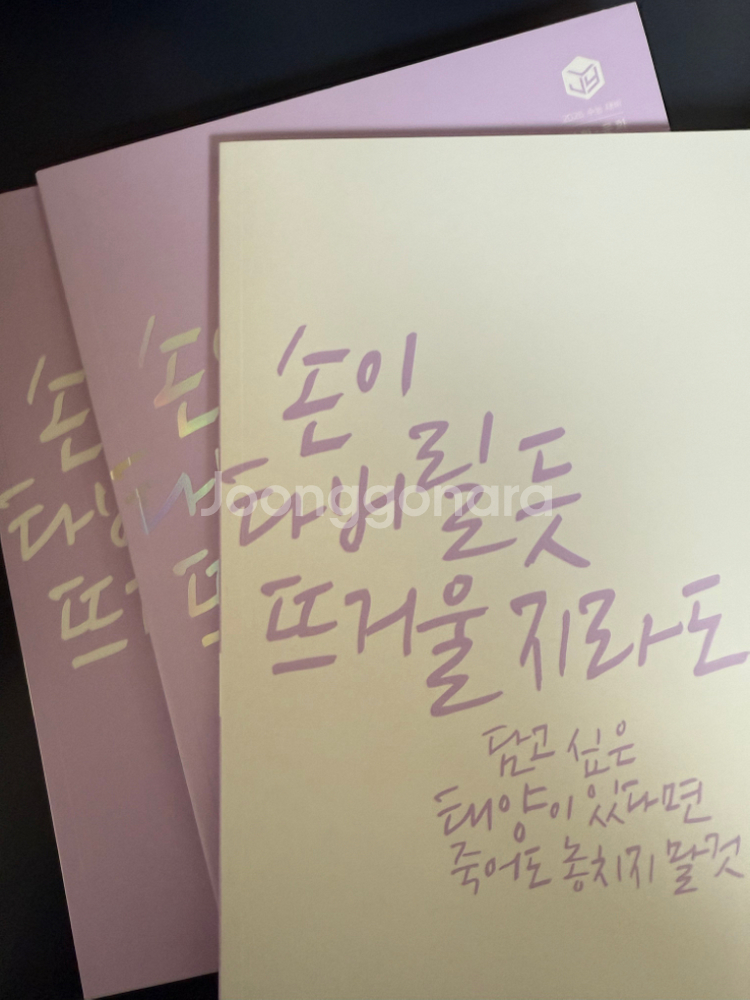 손이
다 버릴 듯
뜨거울지라도
담고 싶은
태양이 있다면
죽어도 놓치지 말 것
손
다
뜨
손
다버
뜨
Joonggonara